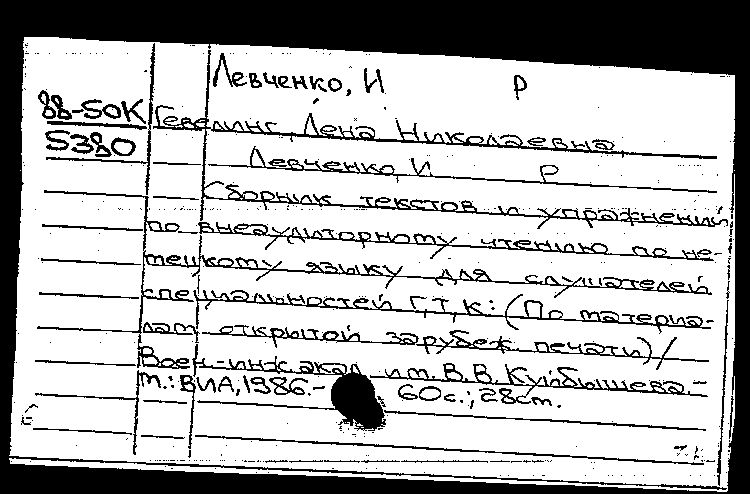 Левченко, И Р
88-50К
5380
Гевелинг, Лена Николаевна,
Левченко, И Р
Сборник текстов и упражнений
по внеаудиторному чтению по не-
мецкому языку для слушателей
специальностей Г,Т,К: (По материа-
лам открытой зарубеж. печати) /
Воен.-инж. акад. им. В.В. Куйбышева.-
М.: ВИА, 1986.- 60с.; 28см.